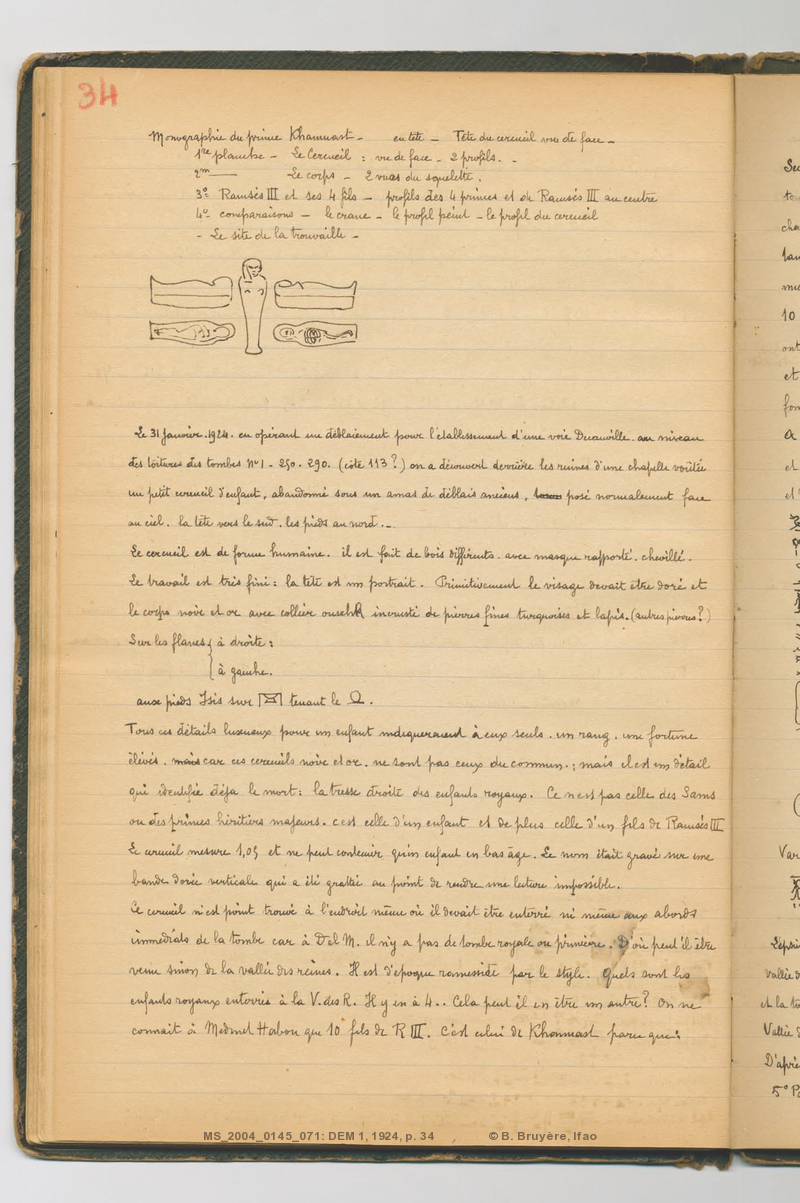 34
Monographie du prince Khamuast - en tête - Tête du cercueil vue de face -
1re planche - Le Cercueil : vu de face - 2 profils. -
2m —— Le corps - 2 vues du squelette.
3° Ramsès III et ses 4 fils - profils des 4 princes et de Ramsès III au centre
4° comparaisons - le crane - le profil peint - le profil du cercueil
- Le site de la trouvaille -
Le 31 Janvier.1924. en opérant un déblaiement pour l'établissement d'une voie Decauville. au niveau
des toitures des tombes N° 1 - 250. 290. (côte 113 ?) on a découvert derrière les ruines d'une chapelle voûtée
un petit cercueil d'enfant, abandonné sous un amas de déblais anciens, posé normalement face
au ciel. la tête vers le sud. les pieds au nord. -
Le cercueil est de forme humaine. il est fait de bois différents. avec masque rapporté. chevillé.
Le travail est très fini : la tête est un portrait. Primitivement le visage devait être doré et
le corps noir et or avec collier ouseKh incrusté de pierres fines turquoises et lapis. (autres pierres ?)
Sur les flancs { à droite :
à gauche.
aux pieds Isis sur tenant le Ω.
Tous ces détails luxueux pour un enfant indiqueraient à eux seuls. un rang. une fortune
élevés. mais car ces cercueils noir et or. ne sont pas ceux du commun. ; mais il est un détail
qui identifie déjà le mort : la tresse droite des enfants royaux. Ce n'est pas celle des Sams
ou des princes héritiers majeurs. c'est celle d'un enfant et de plus celle d'un fils de Ramsès III
Le cercueil mesure 1,05 et ne peut contenir qu'un enfant en bas âge. Le nom était gravé sur une
bande dorée verticale qui a été grattée au point de rendre une lecture impossible.
Ce cercueil n'est point trouvé à l'endroit même où il devait être enterré ni même aux abords
immédiats de la tombe car à Del M. il n'y a pas de tombe royale ou princière. D'où peut il être
venu sinon de la vallée des reines. Il est d'époque ramesside par le style. Quels sont les
enfants royaux enterrés à la V. des R. Il y en a 4.. Cela peut il en être un autre ? On ne
connait à Medinet Habou que 10 fils de R III. C'est celui de Khamuast parce que :
Su
to
cha
tau
mu
10
ont
et
fon
a
et
et
Var
Vallée d
et la to
Vallée
D'apré
5° P
MS_2004_0145_071: DEM 1, 1924, p. 34 © B. Bruyère, Ifao